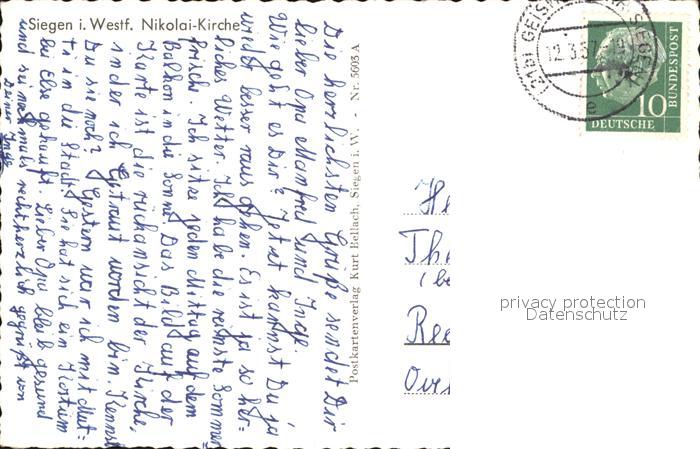 Siegen i. Westf. Nikolai-Kirche
Die herzlichsten Grüße sendet Dir
lieber Opa Manfred und Inge.
Wie geht es Dir? Jetzt kannst Du ja
wieder besser raus gehen. Es ist ja so herr-
liches Wetter. Ich habe die reinste Sommer
frische. Ich sitze jeden Mittag auf dem
Balkon in die Sonne. Das Bild auf der
Karte ist die rückansicht der Kirche,
in der ich Getraut worden bin. Kennst
Du sie noch? Gestern war ich mit Mut=
ti in die Stadt. Sie hat sich ein Kostüm
bei Else gekauft. Lieber Opa bleib gesund
und sei nochmals recht herzlich gegrüßt von
Deiner Inge
Postkartenverlag Kurt Bellach, Siegen i. W. - Nr. 5093 A
(21b) GEIS SIEGEN)
12.3.57
e
DEUTSCHE BUNDESPOST
10
He
Th
(be
Ree
Ove
privacy protection
Datenschutz